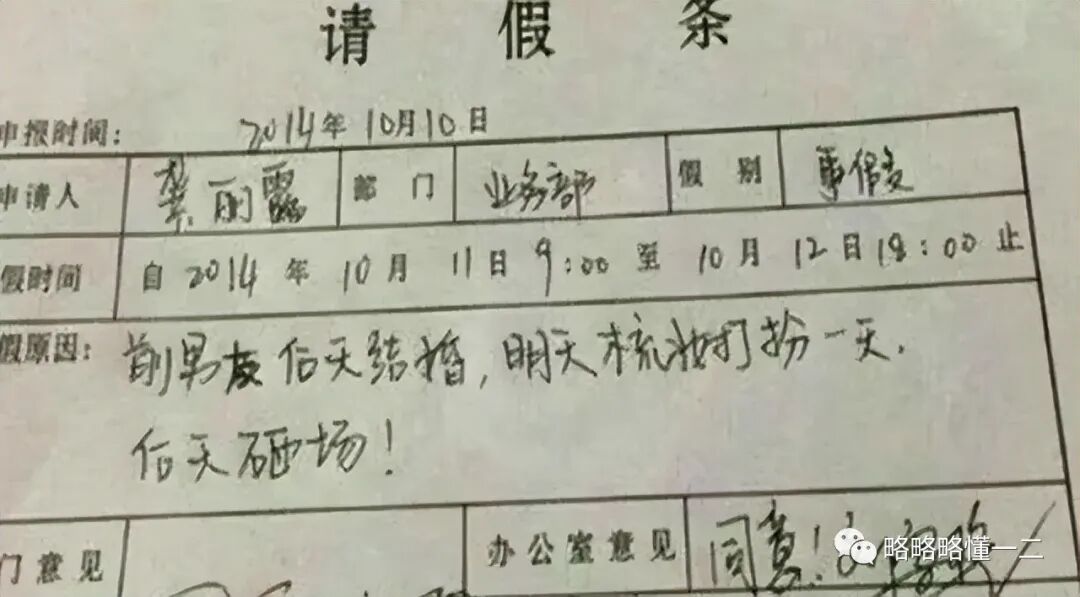 请 假 条
申报时间： 2014年10月10日
申请人 龚丽露 部 门 业务部 假 别 事假
假时间 自2014年10月11日9:00至10月12日18:00止
假原因： 前男友后天结婚，明天梳妆打扮一天.
后天砸场！
门意见 办公室意见 同意！
略略略懂一二